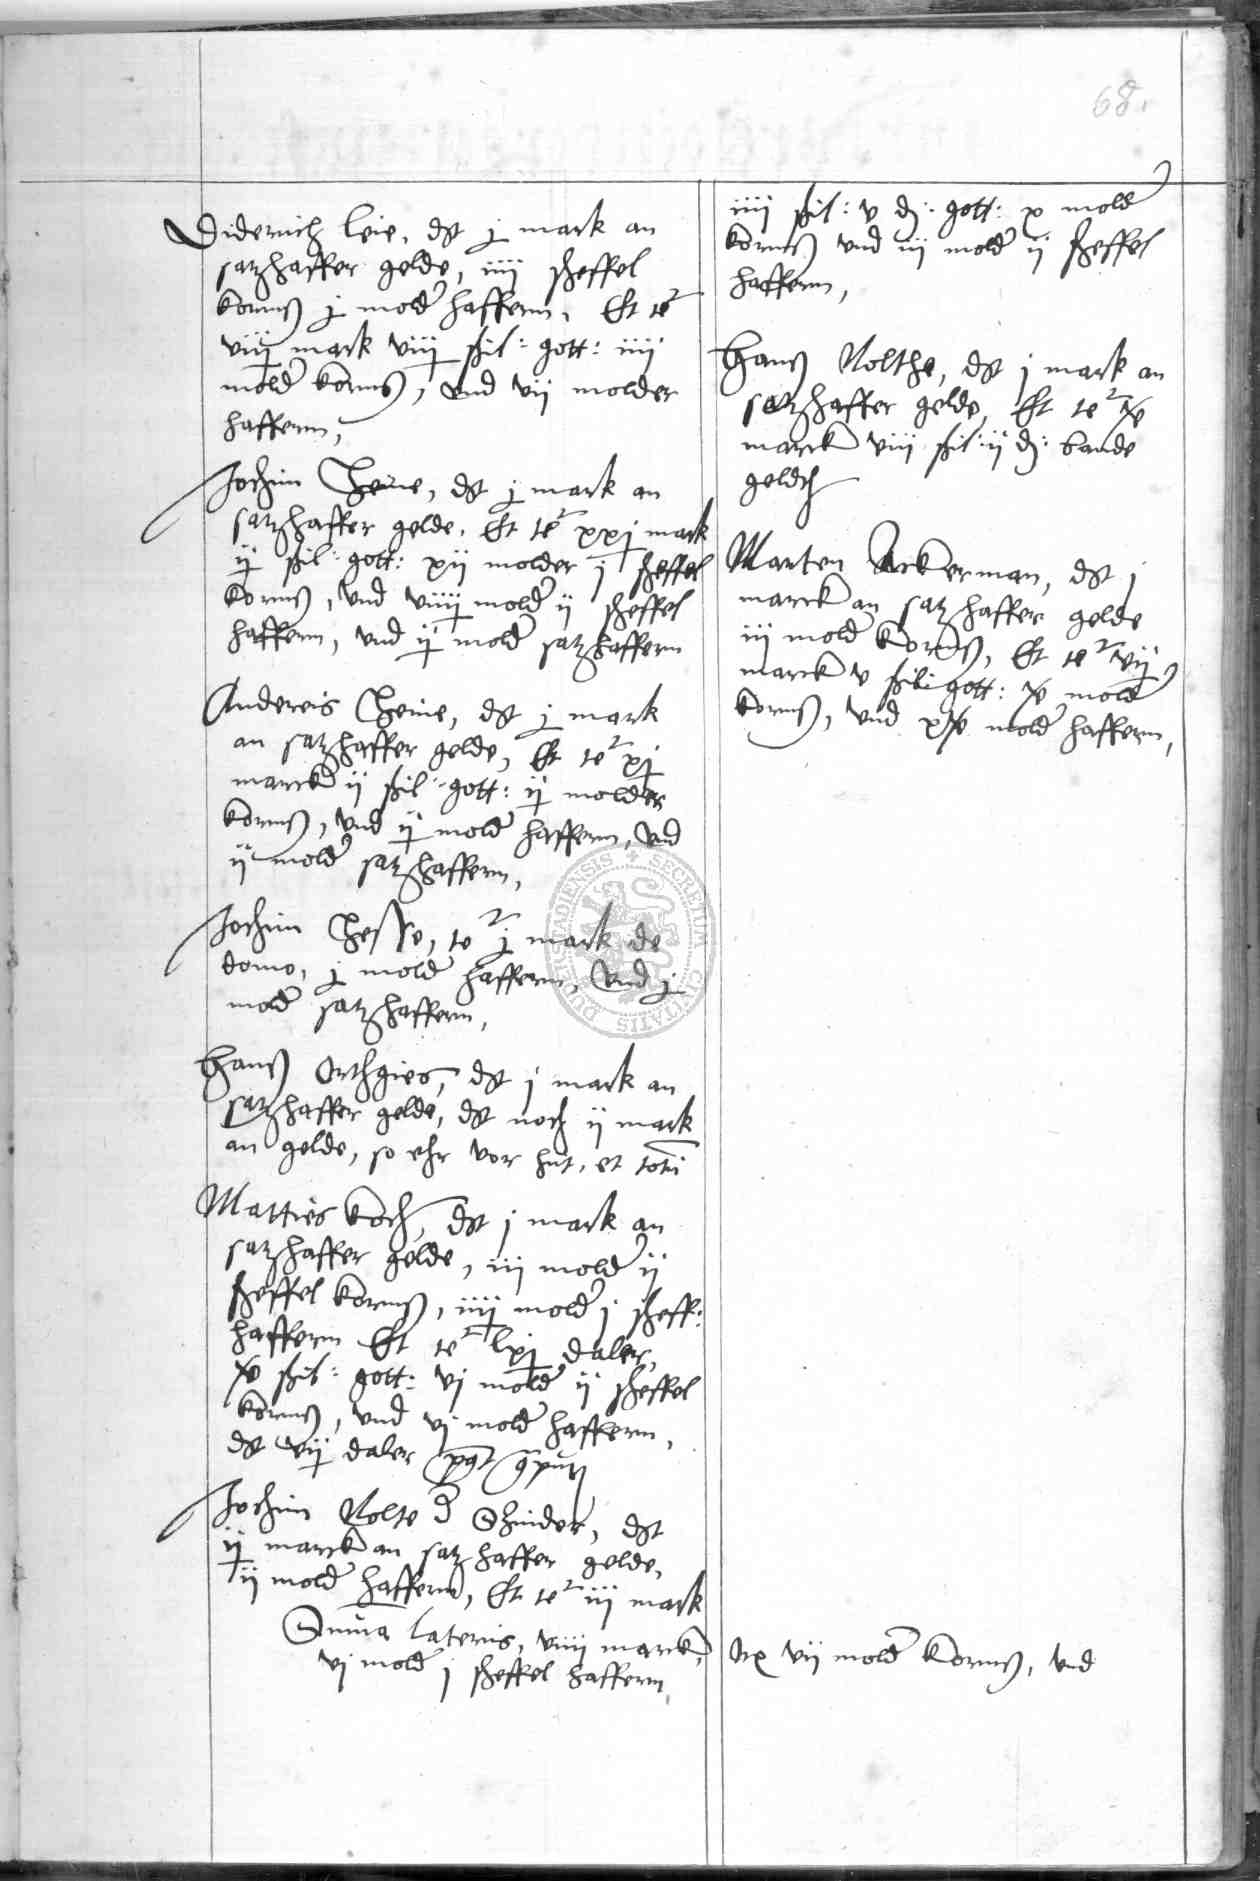 68.
Diderich Leie, dt j mark an
satzhaffer gelde, iiii scheffel
korns j mold haffern, Et te
viij mark viij ßil: gott: iiii
mold korns, vnd vii molder
haffern,
Jochim Heine, dt j mark an
satzhaffer gelde, Et te xxj mark
ij ßil: gott: xii molder j scheffel
korns, vnd viiij mold ii scheffel
haffern, vnd ij mold satzhaffern
Andereis Heine, dt j mark
an satzhaffer gelde, Et te xj
marck ii ßil: gott: ij molder
korns, vnd ij mold haffern, vnd
ij mold satzhaffern,
Jochim Hesse, te j mark de
domo, j mold haffern, vnd j
mold satzhaffern,
Hans Orthgies, dt j mark an
satzhaffer gelde, dt noch ii mark
an gelde, so ehr vor hat, et totu
Matties Koch, dt j mark an
satzhaffer gelde, iii mold ii
scheffel korns, iiij mold j scheff:
haffern Et te lxj daler,
x ßil: gott: vj mold ii scheffel
korns, vnd vj mold haffern,
dt vij daler
Jochim Nolte d Schnider, dt
ij marck an satzhaffer gelde,
ii mold haffern, Et te iii mark
Suma lateris, viiii marck,
vj mold j scheffel haffern
iiii ßil: v d: gott: x mold
korns vnd iii mold ij scheffel
haffern,
Hans Nolthe, dt j mark an
satzhaffer gelde, Et te x
marck viii ßil: ij d: bande
geldes
Marten Ackerman, dt j
marck an satzhaffer gelde
iii mold korns, Et te vij
marck v ßil: gott: x mold
korns, vnd mold haffern,
vii mold korns, vnd
SECRETUM CIVITATIS DUDERSTADIENSIS